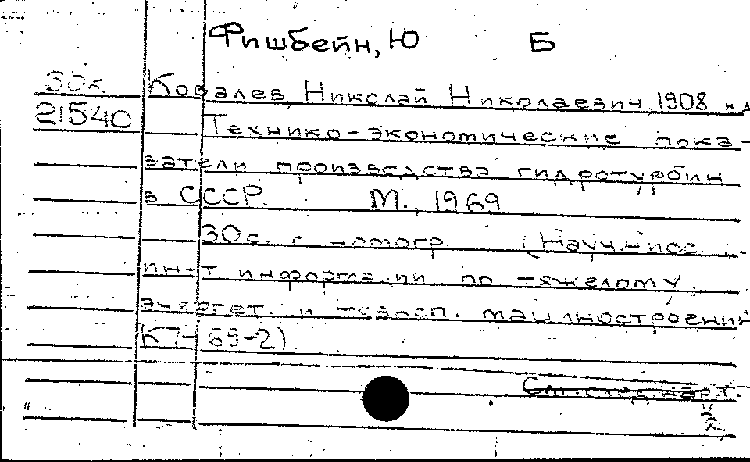 Фишбейн, Ю Б
30к Ковалев, Николай Николаевич, 1908 и др
21540 Технико-экономические пока-
затели производства гидротурбин
в СССР. М., 1969
30с. с
(Науч.-исс
ин-т информации по тяжелому,
энергет. и трансп. машиностроению
69-2)
См. след. карт.